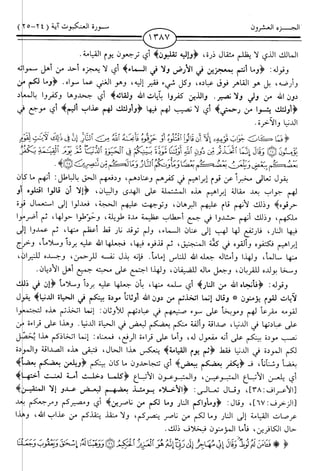 الجــزء العشرون
سورة العنكبوت آية (٢٤-٢٥)
١٣٨٧
المالك الذي لا يظلم مثقال ذرة، ﴿وإليه تقلبون﴾ أي ترجعون يوم القيامة.
وقوله: ﴿وما أنتم بمعجزين في الأرض ولا في السماء﴾ أي لا يعجزه أحد من أهل سمواته
وأرضه، بل هو القاهر فوق عباده، وكل شيء فقير إليه، وهو الغني عما سواه. ﴿وما لكم من
دون الله من ولي ولا نصير. والذين كفروا بآيات الله ولقائه﴾ أي جحدوها وكفروا بالمعاد
﴿أولئك يئسوا من رحمتي﴾ أي لا نصيب لهم فيها ﴿وأولئك لهم عذاب أليم﴾ أي موجع في
الدنيا والآخرة.
يقول تعالى مخبراً عن قوم إبراهيم في كفرهم وعنادهم، ودفعهم الحق بالباطل: أنهم ما كان
لهم جواب بعد مقالة إبراهيم هذه المشتملة على الهدى والبيان، ﴿إلا أن قالوا اقتلوه أو
حرقوه﴾ وذلك لأنهم قام عليهم البرهان، وتوجهت عليهم الحجة، فعدلوا إلى استعمال قوة
ملكهم، وذلك أنهم حشدوا في جمع أحطاب عظيمة مدة طويلة، وحوطوا حولها، ثم أضرموا
فيها النار، فارتفع لها لهب إلى عنان السماء، ولم توقد نار قط أعظم منها، ثم عمدوا إلى
إبراهيم فكتفوه وألقوه في كفة المنجنيق، ثم قذفوه فيها، فجعلها الله عليه برداً وسلاماً، وخرج
منها سالماً، ولهذا وأمثاله جعله الله للناس إماماً. فإنه بذل نفسه للرحمن، وجسده للنيران،
وسخا بولده للقربان، وجعل ماله للضيفان، ولهذا اجتمع على محبته جميع أهل الأديان.
وقوله: ﴿فأنجاه الله من النار﴾ أي سلمه منها، بأن جعلها عليه برداً وسلاماً ﴿إن في ذلك
لآيات لقوم يؤمنون * وقال إنما اتخذتم من دون الله أوثاناً مودة بينكم في الحياة الدنيا﴾ يقول
لقومه مقرعاً لهم وموبخاً على سوء صنيعهم في عبادتهم للأوثان: إنما اتخذتم هذه لتجتمعوا
على عبادتها في الدنيا، صداقة وألفة منكم بعضكم لبعض في الحياة الدنيا. وهذا على قراءة من
نصب مودة بينكم على أنه مفعول له، وأما على قراءة الرفع، فمعناه: إنما اتخاذكم هذا يُحَصِّل
لكم المودة في الدنيا فقط ﴿ثم يوم القيامة﴾ ينعكس هذا الحال، فتبقى هذه الصداقة والمودة
بغضاً وشنآناً، فـ ﴿يكفر بعضكم ببعض﴾ أي تتجاحدون ما كان بينكم ﴿ويلعن بعضكم بعضاً﴾
أي يلعن الأتباع المتبوعين، والمتبوعون الأتباع ﴿كلما دخلت أمة لعنت أختها﴾
[الأعراف: ٣٨]، وقال تعالى: ﴿الأخلاء يومئذ بعضهم لبعض عدو إلا المتقين﴾
[الزخرف: ٦٧]، وقال: ﴿ومأواكم النار وما لكم من ناصرين﴾ أي ومصيركم ومرجعكم بعد
عرصات القيامة إلى النار وما لكم من ناصر ينصركم، ولا منقذ ينقذكم من عذاب الله، وهذا
حال الكافرين، فأما المؤمنون فبخلاف ذلك.